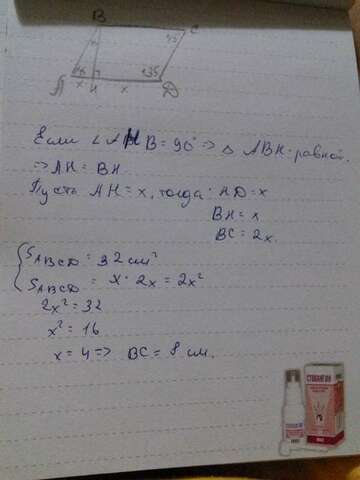 B
C
45
A
45
135
x
H
x
D
Если ∠AHB = 90° => △ ABH - равноб.
=> AH = BH
Пусть AH = x, тогда: HD = x
BH = x
BC = 2x.
S ABCD = 32 см²
S ABCD = x · 2x = 2x²
2x² = 32
x² = 16
x = 4 => BC = 8 см.
СТОПАНГИН